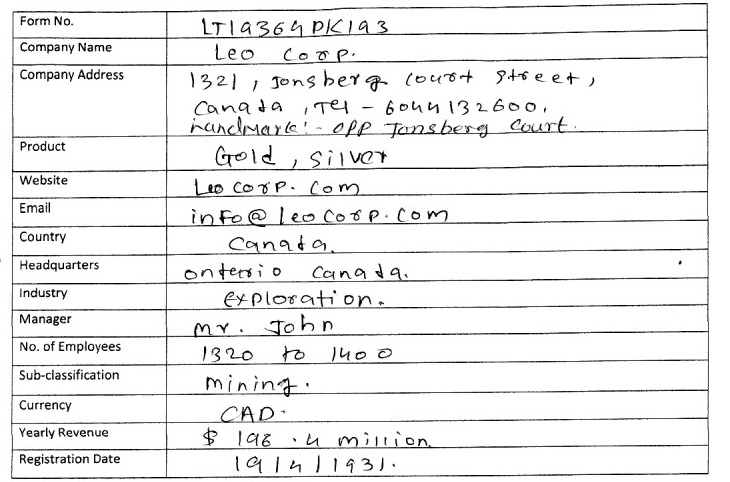 Form No. LT19364DK193
Company Name Leo Corp.
Company Address 1321, Jonsberg Court Street,
Canada, Tel - 6044132600,
Landmark:- Opp Jonsberg Court.
Product Gold, Silver
Website Leo Corp. Com
Email info@leocorp.com
Country Canada.
Headquarters onterrio Canada.
Industry Exploration.
Manager Mr. John
No. of Employees 1320 to 1400
Sub-classification Mining.
Currency CAD.
Yearly Revenue $ 198.4 million.
Registration Date 19/4/1931.